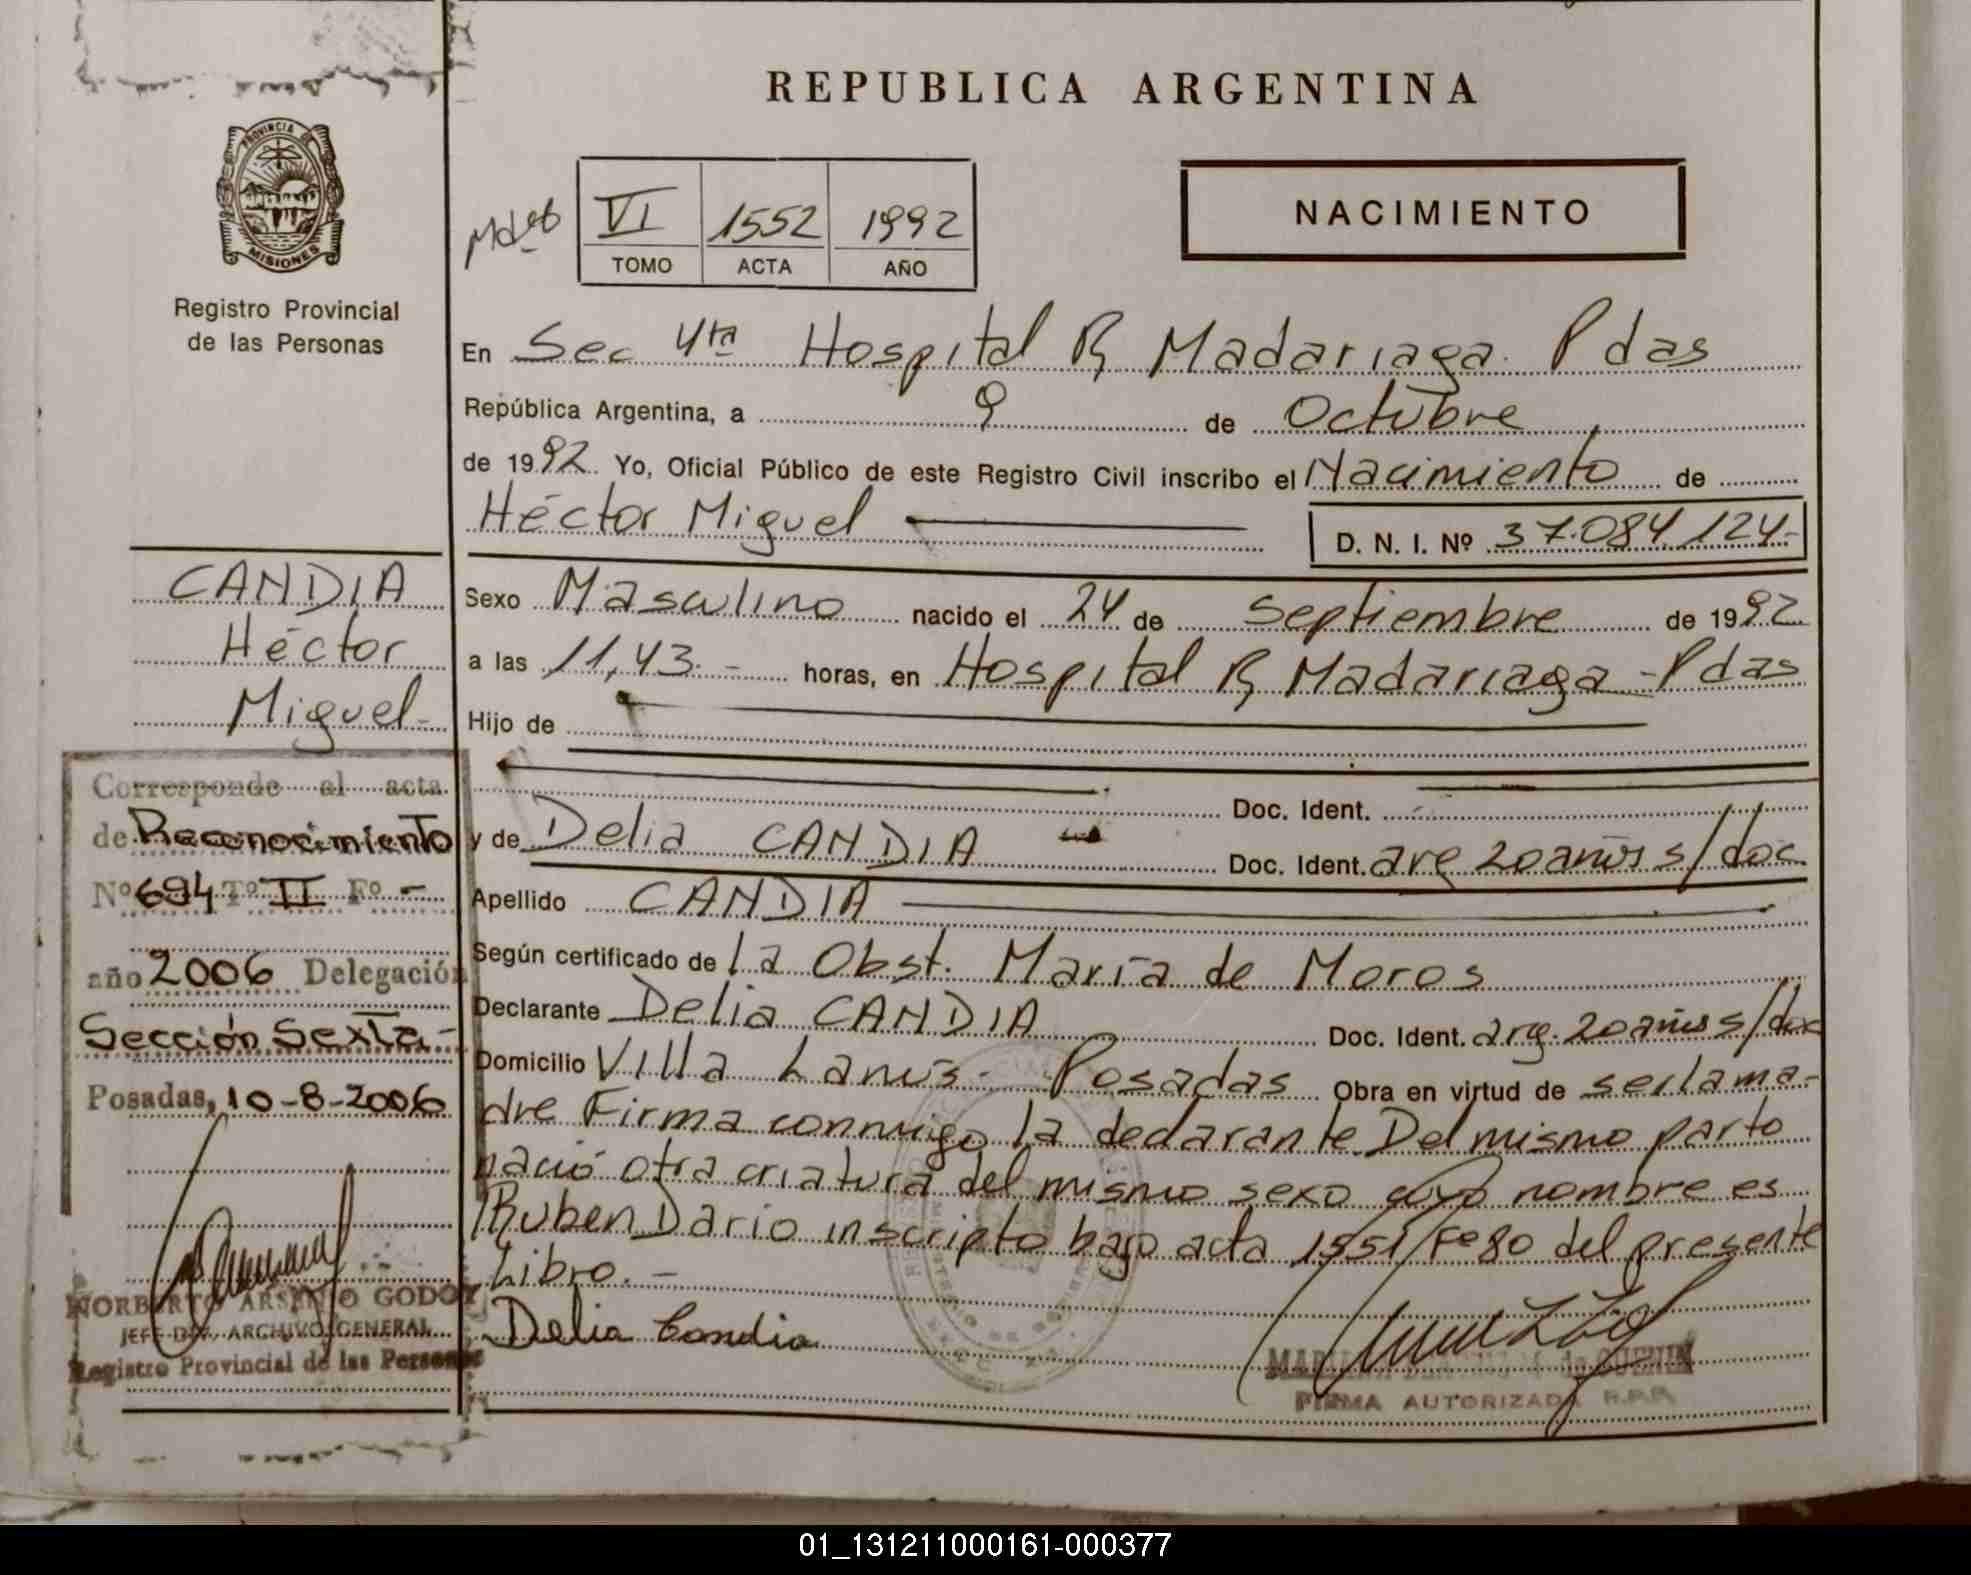 REPUBLICA ARGENTINA
PROVINCIA DE
MISIONES
Registro Provincial
de las Personas
VI 1552 1992
TOMO ACTA AÑO
NACIMIENTO
En Sec 4ta Hospital R Madariaga Pdas
República Argentina, a 9 de Octubre
de 1992 Yo, Oficial Público de este Registro Civil inscribo el Nacimiento de
Héctor Miguel
D. N. I. Nº 37.084.124-
CANDIA
Héctor
Miguel-
Sexo Masculino nacido el 24 de Septiembre de 1992
a las 11,43.- horas, en Hospital R Madariaga - Pdas
Hijo de
Doc. Ident.
y de Delia CANDIA Doc. Ident. arg 20 años s/doc.
Apellido CANDIA
Según certificado de la Obst. María de Moros
Declarante Delia CANDIA Doc. Ident. arg. 20 años s/doc
Domicilio Villa Lanús - Posadas Obra en virtud de ser la ma-
dre Firma conmigo la declarante. Del mismo parto
nació otra criatura del mismo sexo cuyo nombre es
Ruben Dario inscripto bajo acta 1551/Fº80 del presente
Libro.-
Delia Candia
FIRMA AUTORIZADA R.P.P.
Corresponde al acta
de Reconocimiento
Nº 694 Tº II Fº -
año 2006 Delegación
Sección Sexta-
Posadas, 10-8-2006
NORBERTO ARSENIO GODOY
JEFE DIV. ARCHIVO GENERAL
Registro Provincial de las Personas
01_131211000161-000377